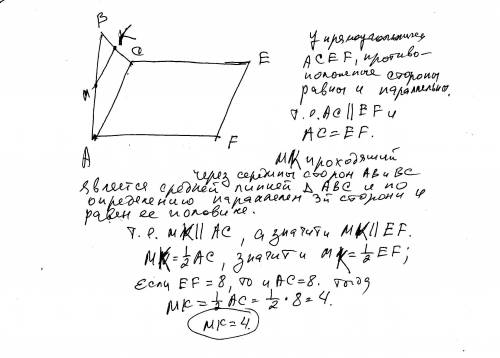 B
K
C
E
M
A
F
У прямоугольника
ACEF, противо-
положные стороны
равны и параллельны.
Т.е. AC || EF и
AC = EF.
MK проходящий
через середины сторон AB и BC
является средней линией Δ ABC и по
определению параллелен 3й стороне и
равен ее половине.
Т.е. MK || AC, а значит и MK || EF.
MK = 1/2 AC, значит и MK = 1/2 EF;
Если EF = 8, то и AC = 8. Тогда
MK = 1/2 AC = 1/2 · 8 = 4.
MK = 4.